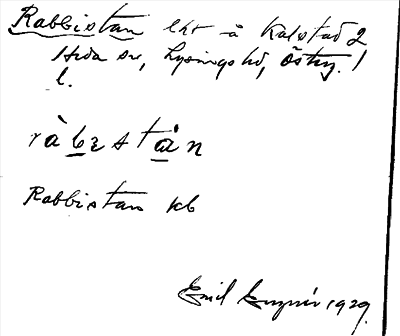 Rabbistan lht å Kalstad 2
Heda sn, Lysings hd, Östg. 1
l.
ràbɛstån
Rabbistan kb
Emil 1929.